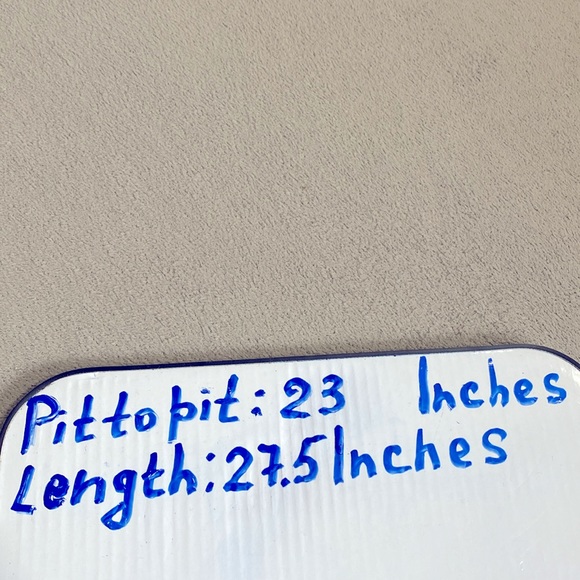 Pit to pit: 23 Inches
Length: 27.5 Inches